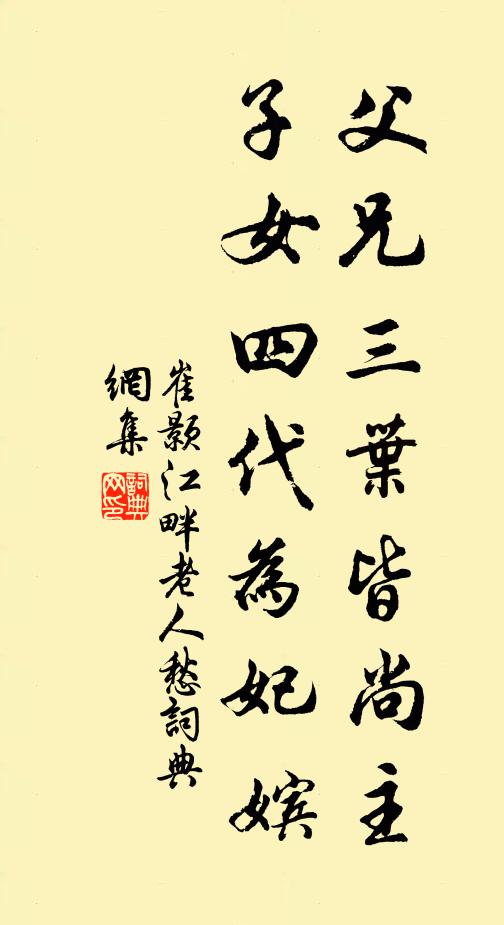 父兄三葉皆尚主
子女四代為妃嬪
崔颢江畔老人愁詞典
網集
詞典
网印